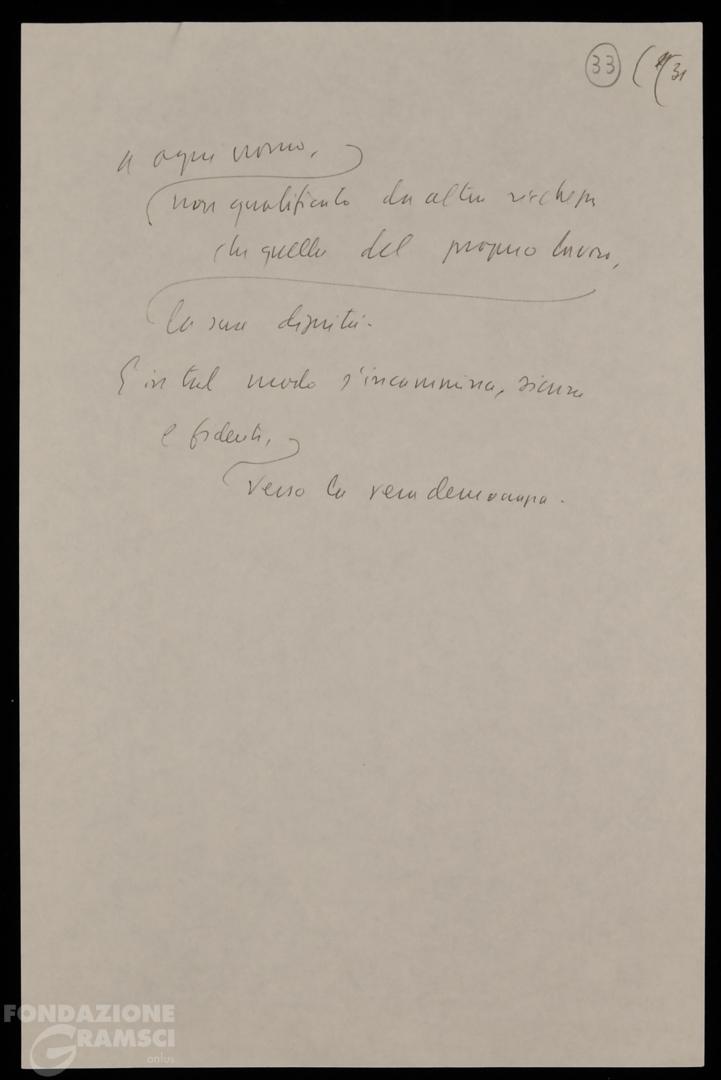 33 ( ( 31
a ogni uomo,
non qualificato da altra ricchezza
che quella del proprio lavoro,
la sua dignità.
E in tal modo s'incammina, sicura
e fidente,
verso la vera democrazia.
FONDAZIONE
GRAMSCI
onlus